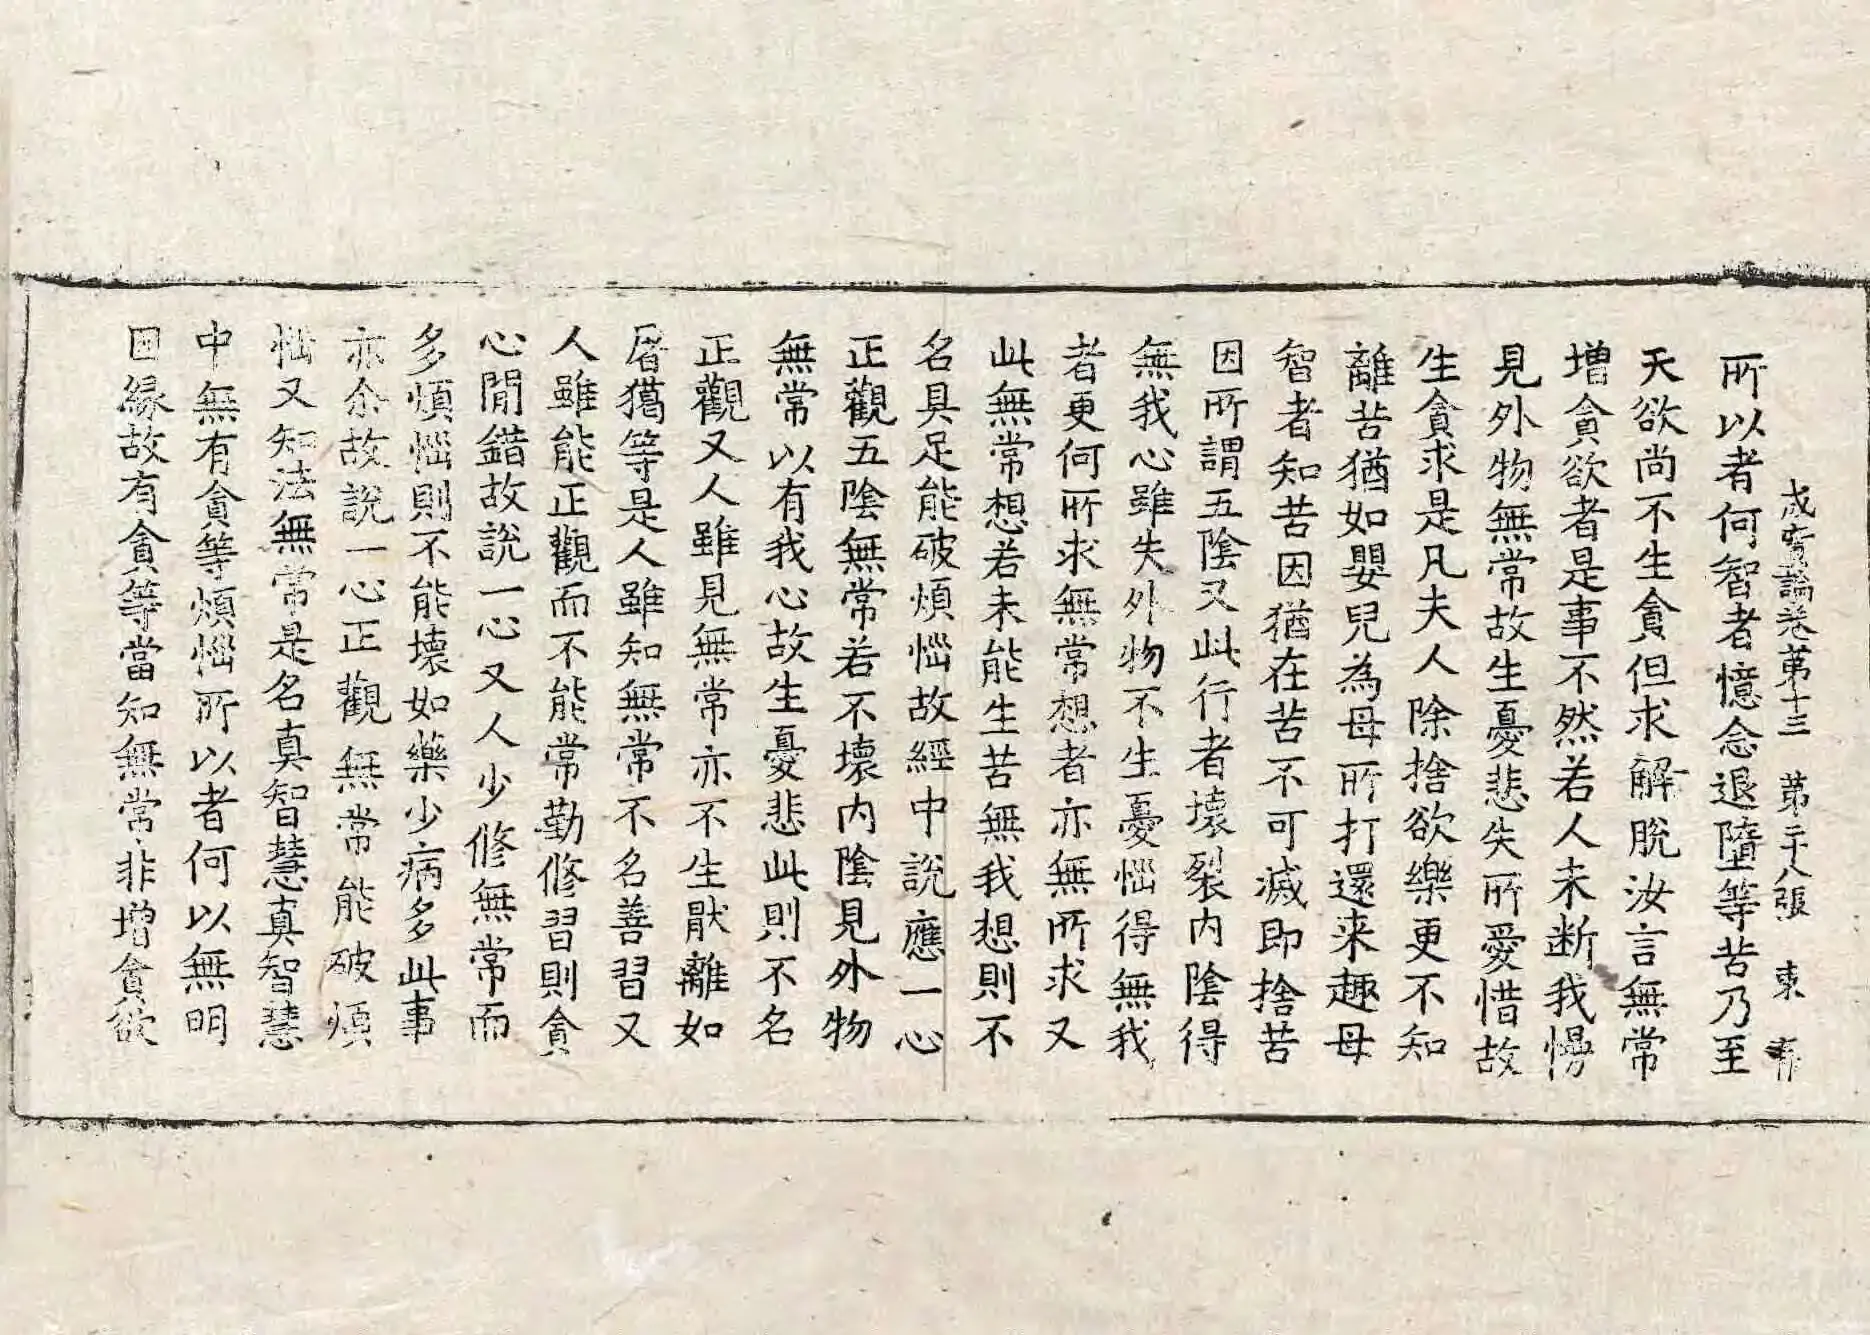 成實論卷第十三 第二十八張 東
所以者何智者憶念退墮等苦乃至
天欲尚不生貪但求解脫汝言無常
增貪欲者是事不然若人未斷我慢
見外物無常故生憂悲失所愛惜故
生貪求是凡夫人除捨欲樂更不知
離苦猶如嬰兒為母所打還来趣母
智者知苦因猶在苦不可滅即捨苦
因所謂五陰又此行者壞裂内陰得
無我心雖失外物不生憂惱得無我
者更何所求無常想者亦無所求又
此無常想若未能生苦無我想則不
名具足能破煩惱故經中說應一心
正觀五陰無常若不壞内陰見外物
無常以有我心故生憂悲此則不名
正觀又人雖見無常亦不生猒離如
屠獦等是人雖知無常不名善習又
人雖能正觀而不能常勤修習則貪
心閒錯故說一心又人少修無常而
多煩惱則不能壞如藥少病多此事
亦尒故說一心正觀無常能破煩
惱又知法無常是名真智慧真智慧
中無有貪等煩惱所以者何以無明
因緣故有貪等當知無常非增貪欲